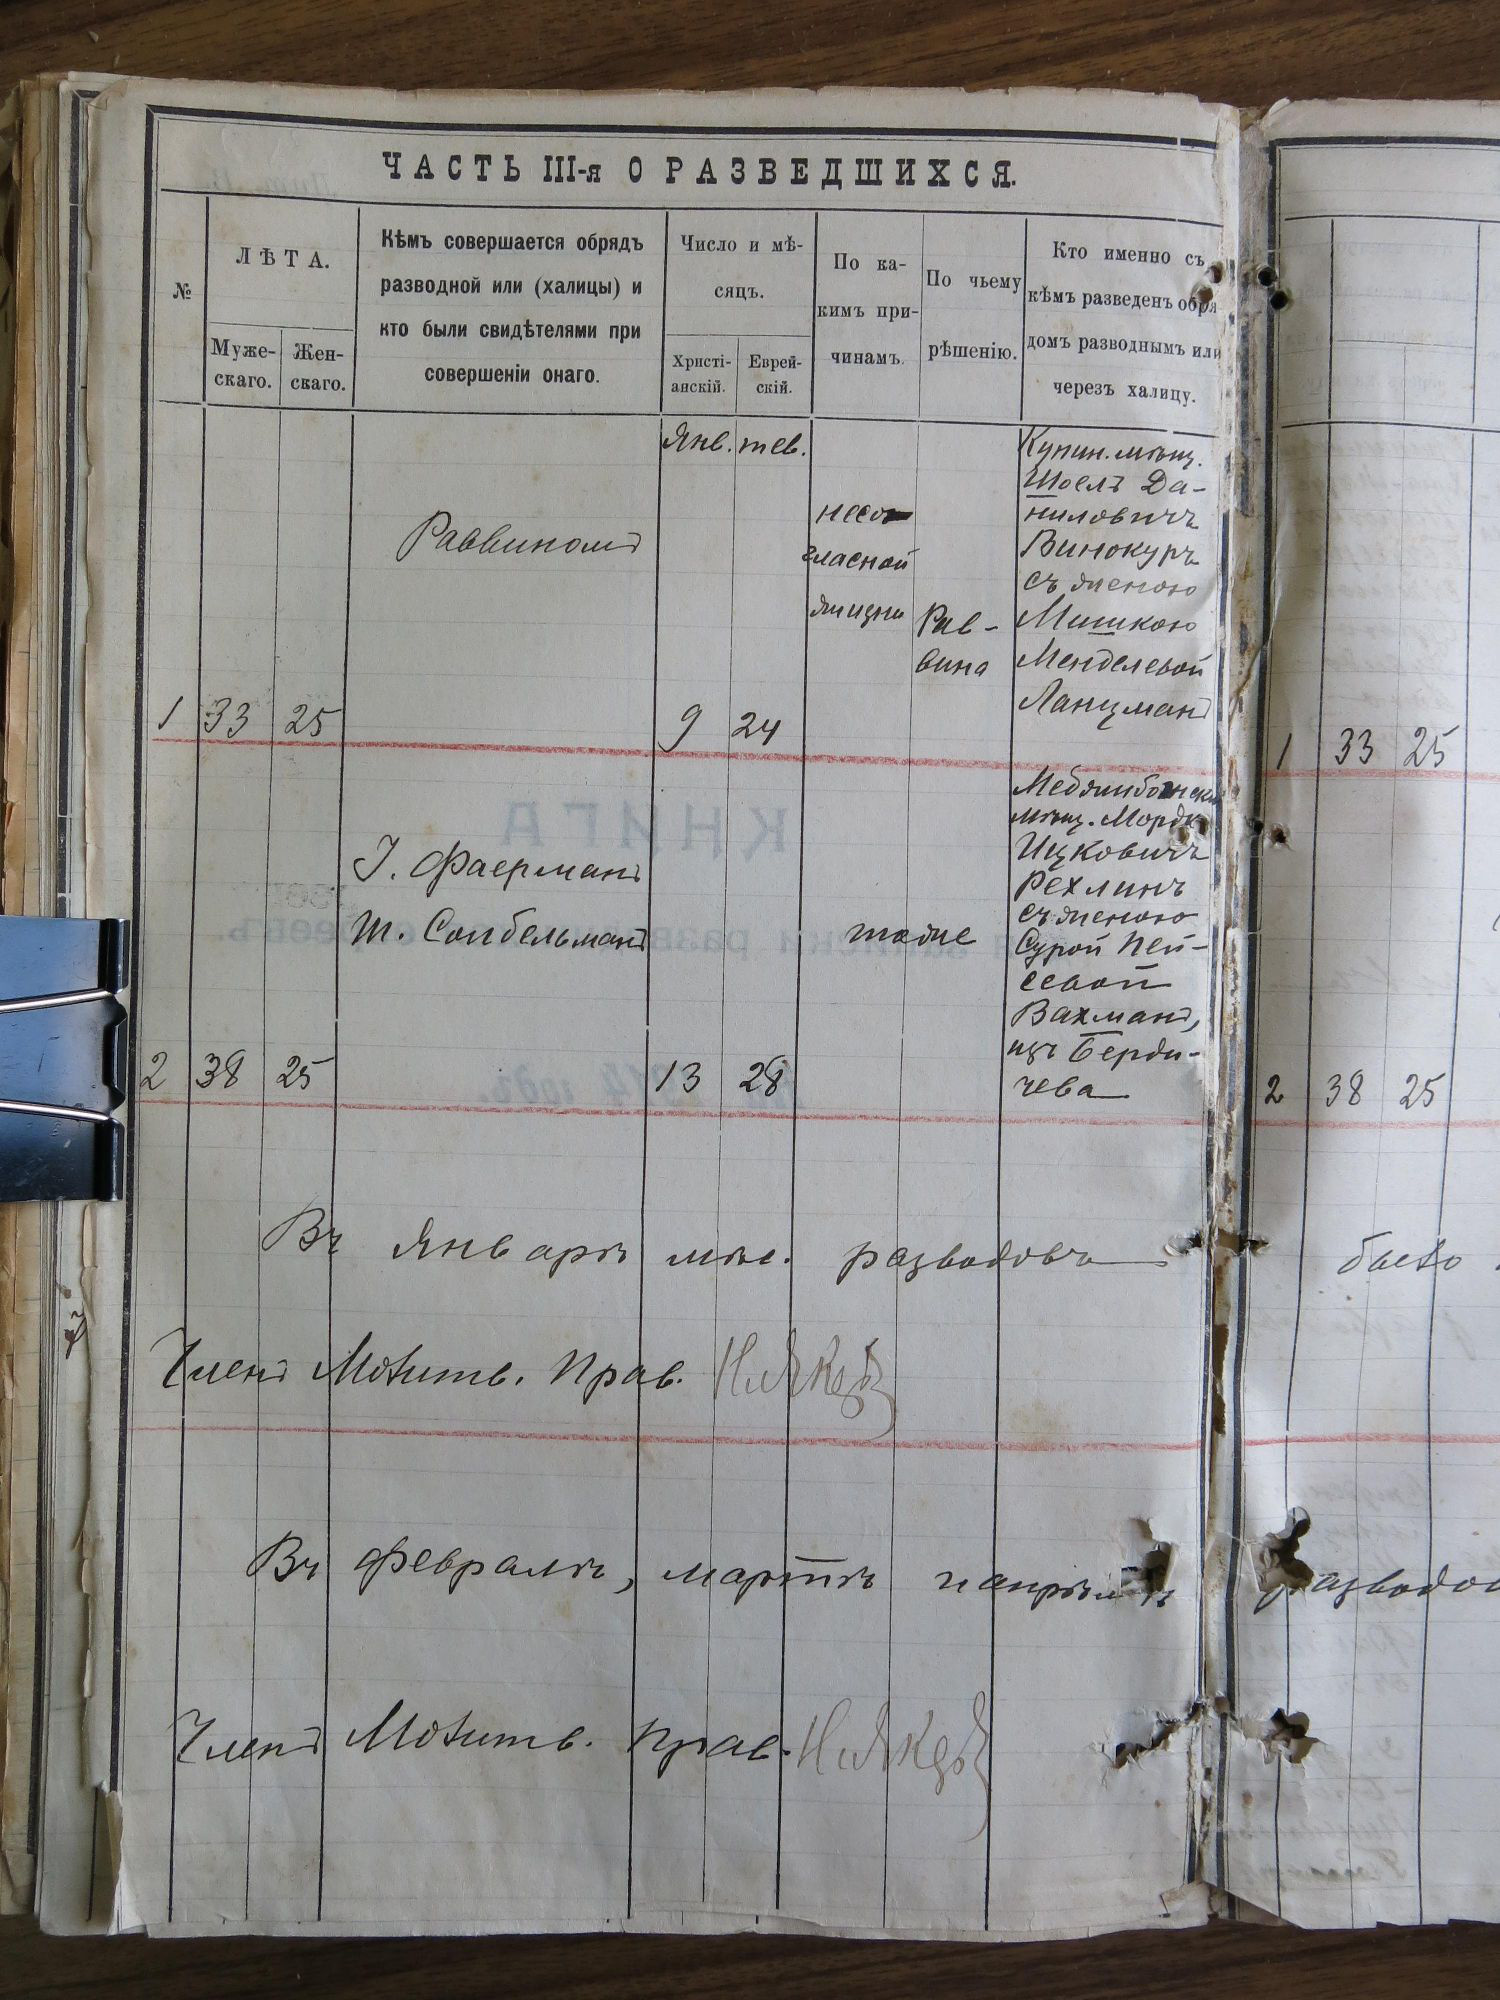 ЧАСТЬ III-я О РАЗВЕДШИХСЯ.
№
ЛѢТА.
Муже-
скаго.
Жен-
скаго.
Кѣмъ совершается обрядъ
разводной или (халицы) и
кто были свидѣтелями при
совершеніи онаго.
Число и мѣ-
сяцъ.
Христі-
анскій.
Еврей-
скій.
По ка-
кимъ при-
чинамъ.
По чьему
рѣшенію.
Кто именно съ
кѣмъ разведенъ обря
домъ разводнымъ или
черезъ халицу.
1 33 25
Раввиномъ
Янв. тев.
9 24
несо
гласной
жизни
Рав-
вина
Купин. мѣщ.
Шоелъ Да-
ниловичъ
Винокуръ
съ женою
Мишкою
Менделевой
Ланцманъ
1 33 25
2 38 25
І. Фаерманъ
Ш. Сомбельманъ
13 28
тоже
мѣщ. Мордк
Ицковичъ
Рехлинъ
съ женою
Сурой Пей-
севой
Вахманъ,
изъ Берди-
чева
2 38 25
КНИГА
Въ Январѣ мѣс. разводовъ
было
Членъ Молитв. Прав.
Въ феврале, мартѣ и апрѣлѣ
разводов
Членъ Молитв. Прав.